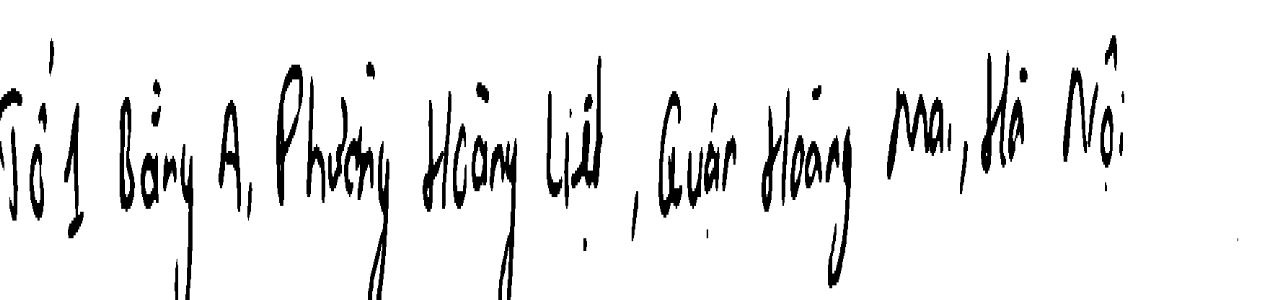 Tổ 1 Bằng A, Phường Hoàng Liệt, Quận Hoàng Mai, Hà Nội